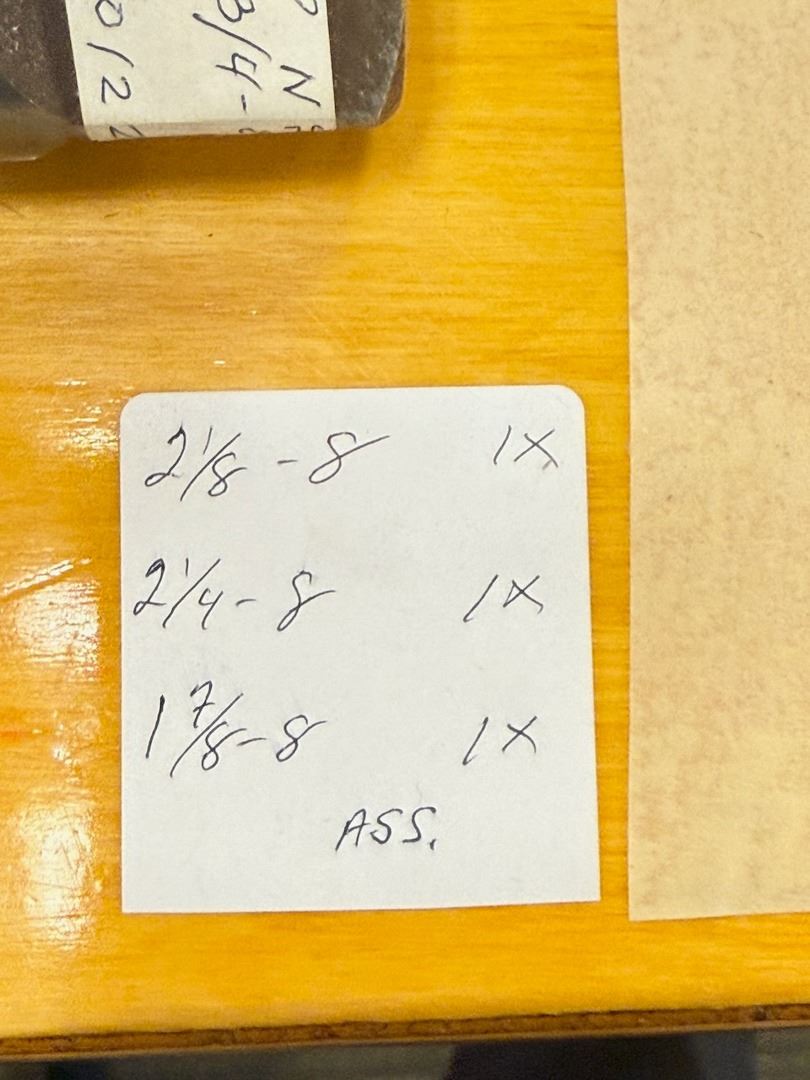 3/4-
N
012
2 1/8 - 8 1X
2 1/4 - 8 1X
1 7/8 - 8 1X
ASS.